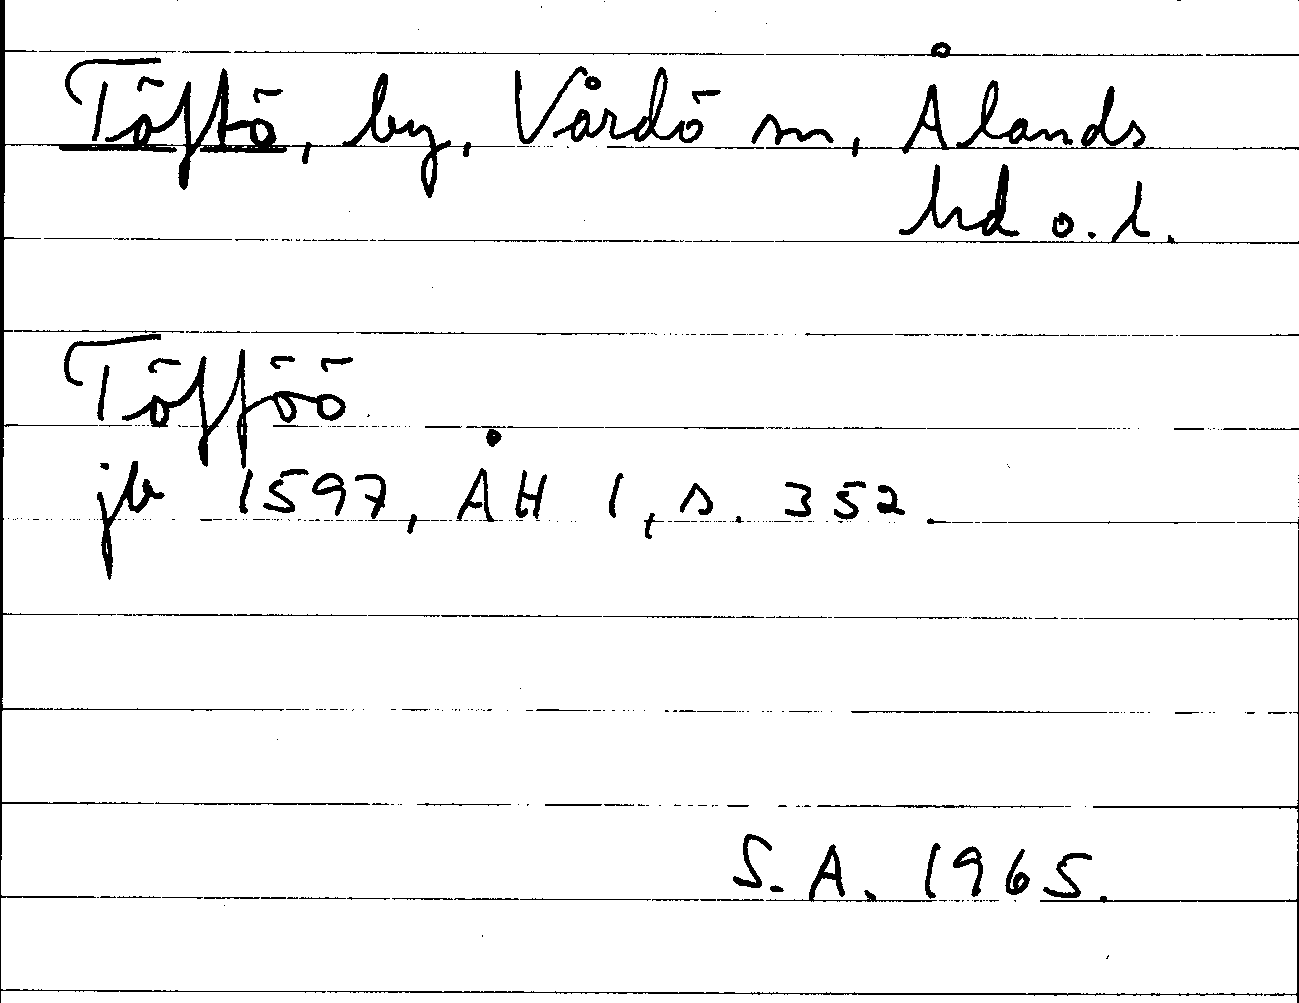 Töftö, by, Vårdö sn, Ålands
hd o. l.
Töfföö
jb 1597, ÅH 1, s. 352.
S. A. 1965.